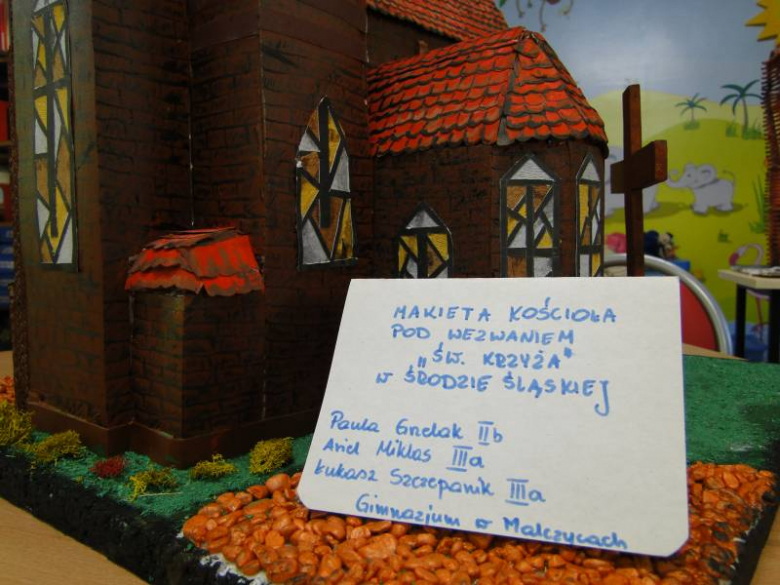 MAKIETA KOŚCIOŁA
POD WEZWANIEM
„ŚW. KRZYŻA"
W ŚRODZIE ŚLĄSKIEJ
Paula Gnelak II b
Ariel Miklas III a
Łukasz Szczepanik III a
Gimnazjum w Malczycach